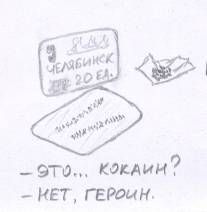 ЧЕЛЯБИНСК
20 ЕД.
– ЭТО... КОКАИН?
– НЕТ, ГЕРОИН.